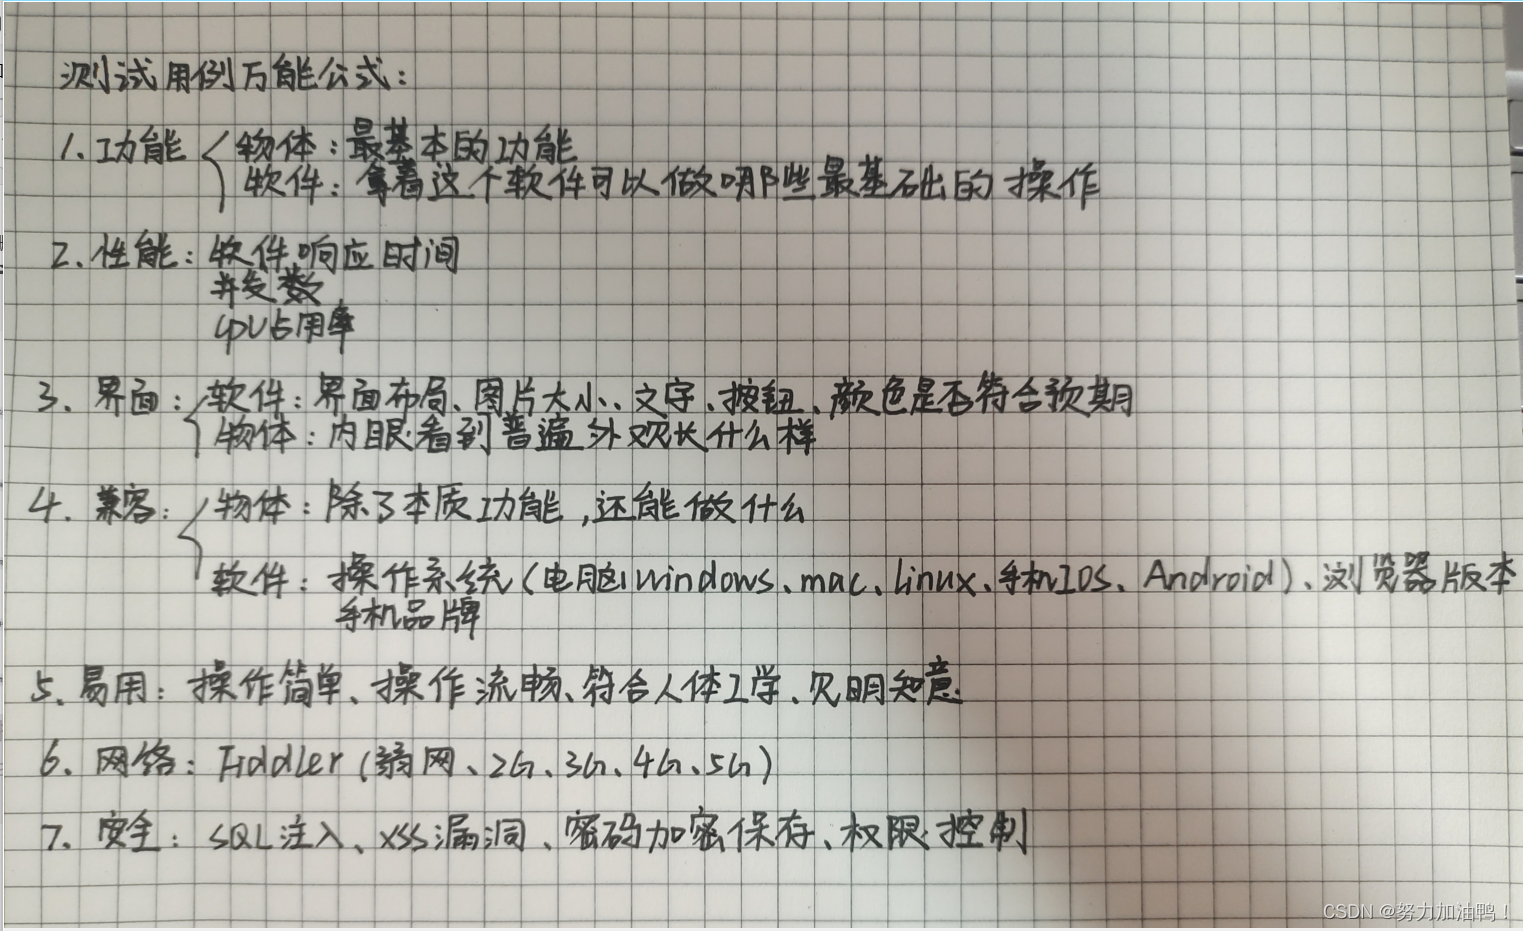 测试用例万能公式：
1. 功能 物体：最基本的功能
软件：拿着这个软件可以做哪些最基础的操作
2. 性能：软件响应时间
并发数
CPU占用率
3. 界面：软件：界面布局、图片大小、文字、按钮、颜色是否符合预期
物体：内眼看到普遍外观长什么样
4. 兼容：物体：除了本质功能，还能做什么
软件：操作系统（电脑windows、mac、linux、手机IOS、Android）、浏览器版本
手机品牌
5. 易用：操作简单、操作流畅、符合人体工学、见明知意
6. 网络：Fiddler（弱网、2G、3G、4G、5G）
7. 安全：SQL注入、XSS漏洞、密码加密保存、权限控制
CSDN @努力加油鸭！